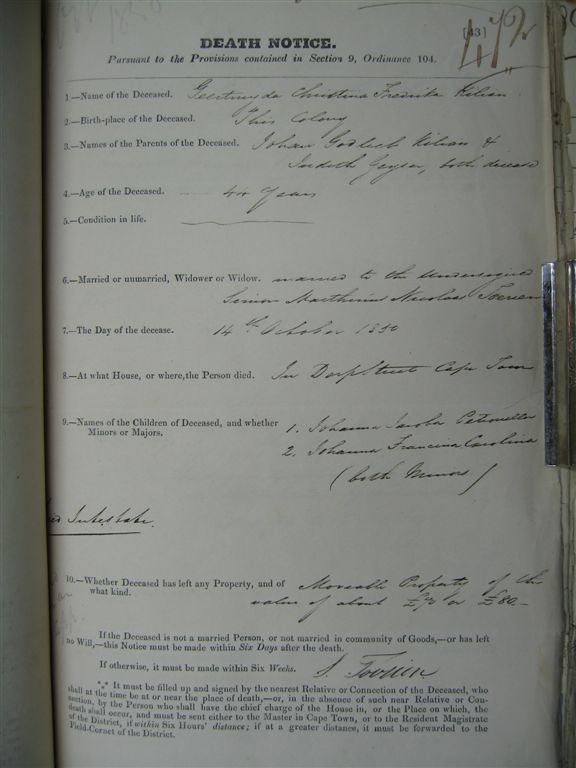 [43]
472
DEATH NOTICE.
Pursuant to the Provisions contained in Section 9, Ordinance 104.
1.—Name of the Deceased. Geertruyda Christina Fredrika Kilian
2.—Birth-place of the Deceased. This Colony
3.—Names of the Parents of the Deceased. Johan Godlieb Kilian &
Judith Geyser, both deceased
4.—Age of the Deceased. 44 Years
5.—Condition in life.
6.—Married or unmarried, Widower or Widow. married to the undersigned
Simon Marthinus Nicolaas Toerien
7.—The Day of the decease. 14th October 1850
8.—At what House, or where, the Person died. In Dorp Street Cape Town
9.—Names of the Children of Deceased, and whether
Minors or Majors.
1. Johanna Jacoba Petronella
2. Johanna Francina Carolina
(both Minors)
Intestate.
10.—Whether Deceased has left any Property, and of
what kind.
Moveable Property of the
value of about £70 or £80.—
If the Deceased is not a married Person, or not married in community of Goods,—or has left
no Will,—this Notice must be made within Six Days after the death.
If otherwise, it must be made within Six Weeks.
S. Toerien
*** It must be filled up and signed by the nearest Relative or Connection of the Deceased, who
shall at the time be at or near the place of death,—or, in the absence of such near Relative or Con-
nection, by the Person who shall have the chief charge of the House in, or the Place on which, the
death shall occur, and must be sent either to the Master in Cape Town, or to the Resident Magistrate
of the District, if within Six Hours' distance; if at a greater distance, it must be forwarded to the
Field-Cornet of the District.